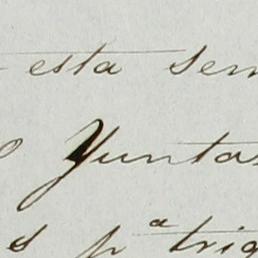 esta sem
Yuntas
s pª trig